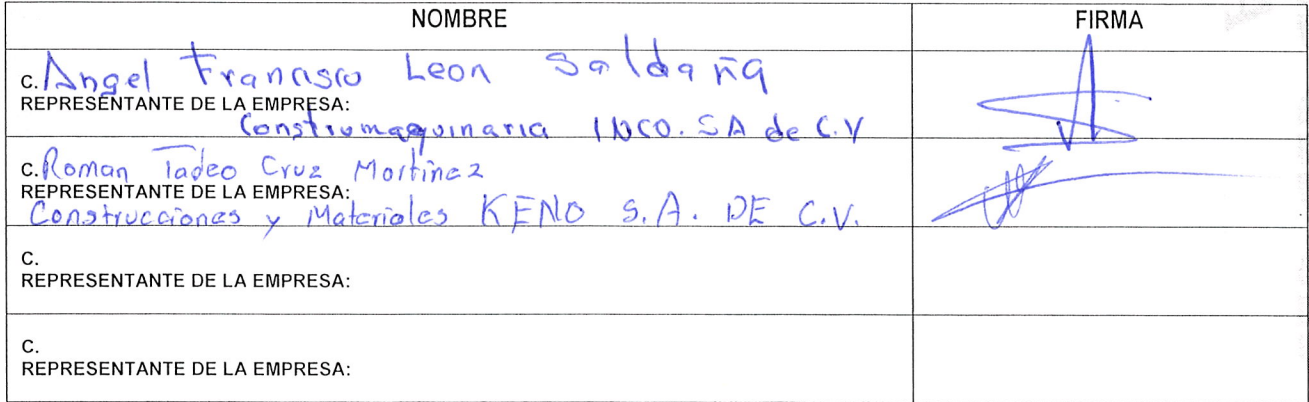 NOMBRE FIRMA
C. Angel Francisco Leon Saldaña
REPRESENTANTE DE LA EMPRESA:
Construmaquinaria INCO. SA de C.V
C. Roman Tadeo Cruz Martinez
REPRESENTANTE DE LA EMPRESA:
Construcciones y Materiales KENO S.A. DE C.V.
C.
REPRESENTANTE DE LA EMPRESA:
C.
REPRESENTANTE DE LA EMPRESA: